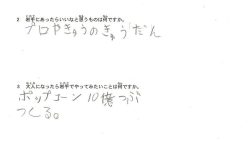 2 岩手にあったらいいなと思うものは何ですか。
プロやきゅうのきゅうだん
3 大人になったら岩手でやってみたいことは何ですか。
ポップコーン10億つぶ
つくる。